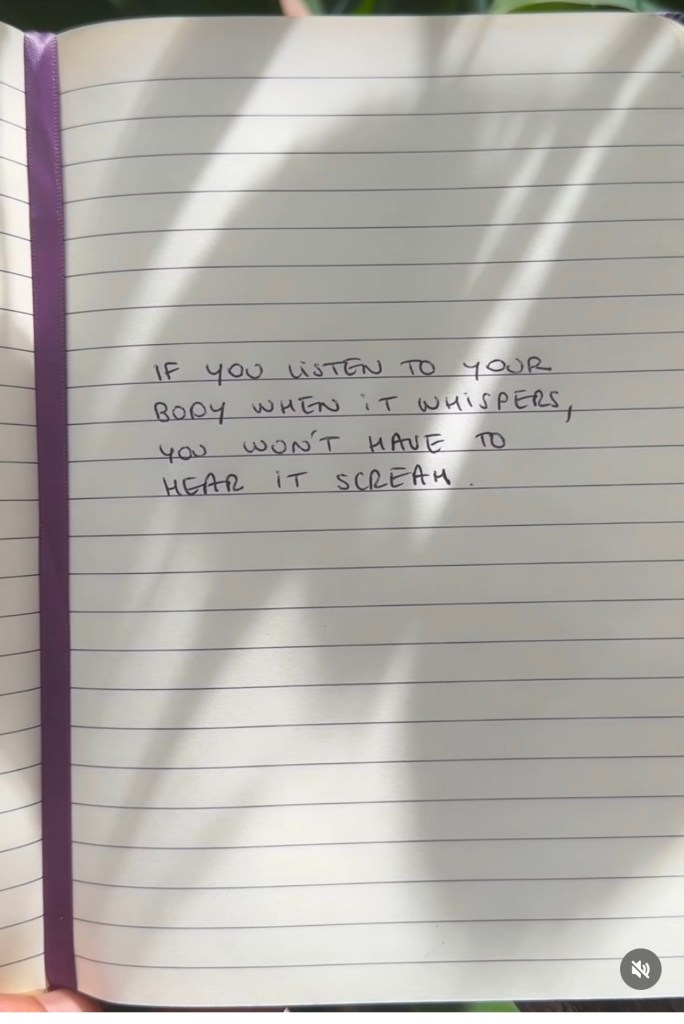 IF YOU LISTEN TO YOUR
BODY WHEN IT WHISPERS,
YOU WON'T HAVE TO
HEAR IT SCREAM.